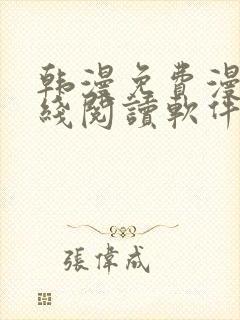 韩漫免费漫
线阅读軟件
張偉成